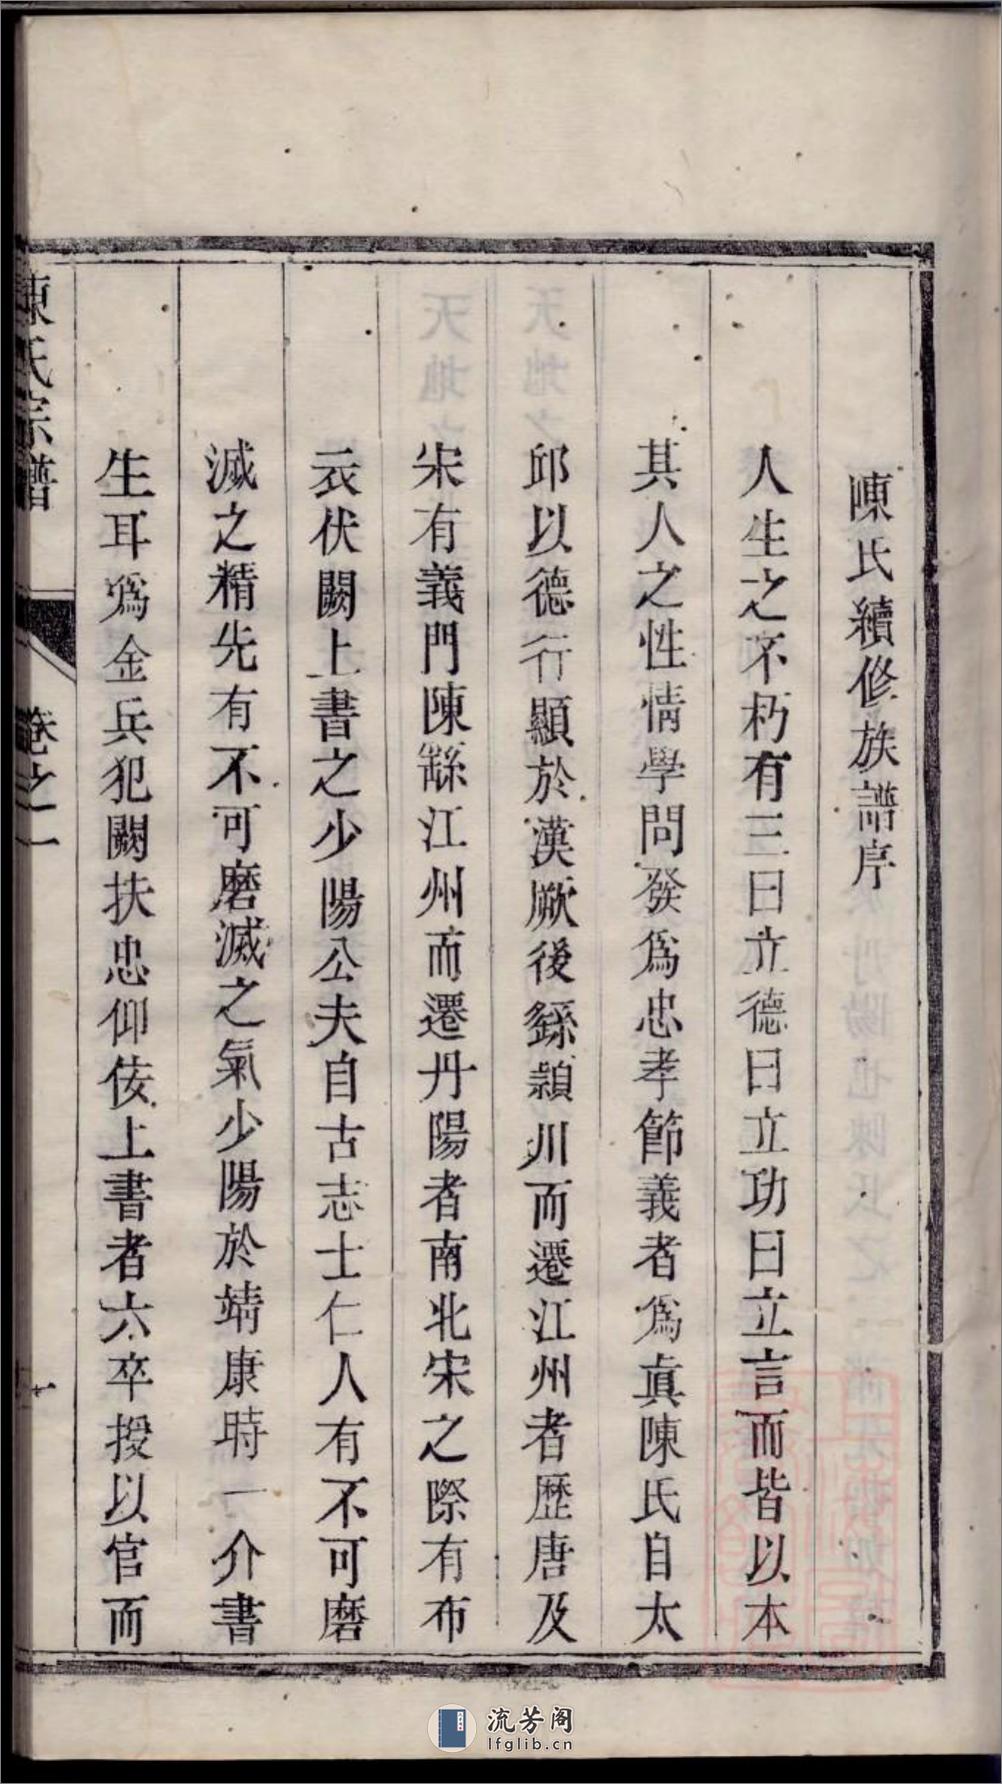 陳氏續修族譜序
人生之不朽有三曰立德曰立功曰立言而皆以本
其人之性情學問發爲忠孝節義者爲眞陳氏自太
邱以德行顯於漢厥後繇潁川而遷江州者歷唐及
宋有義門陳繇江州而遷丹陽者南北宋之際有布
衣伏闕上書之少陽公夫自古志士仁人有不可磨
滅之精先有不可磨滅之氣少陽於靖康時一介書
生耳爲金兵犯闕扶忠仰佞上書者六卒授以官而
陳氏宗譜
卷之一
流芳阁
lfglib.cn